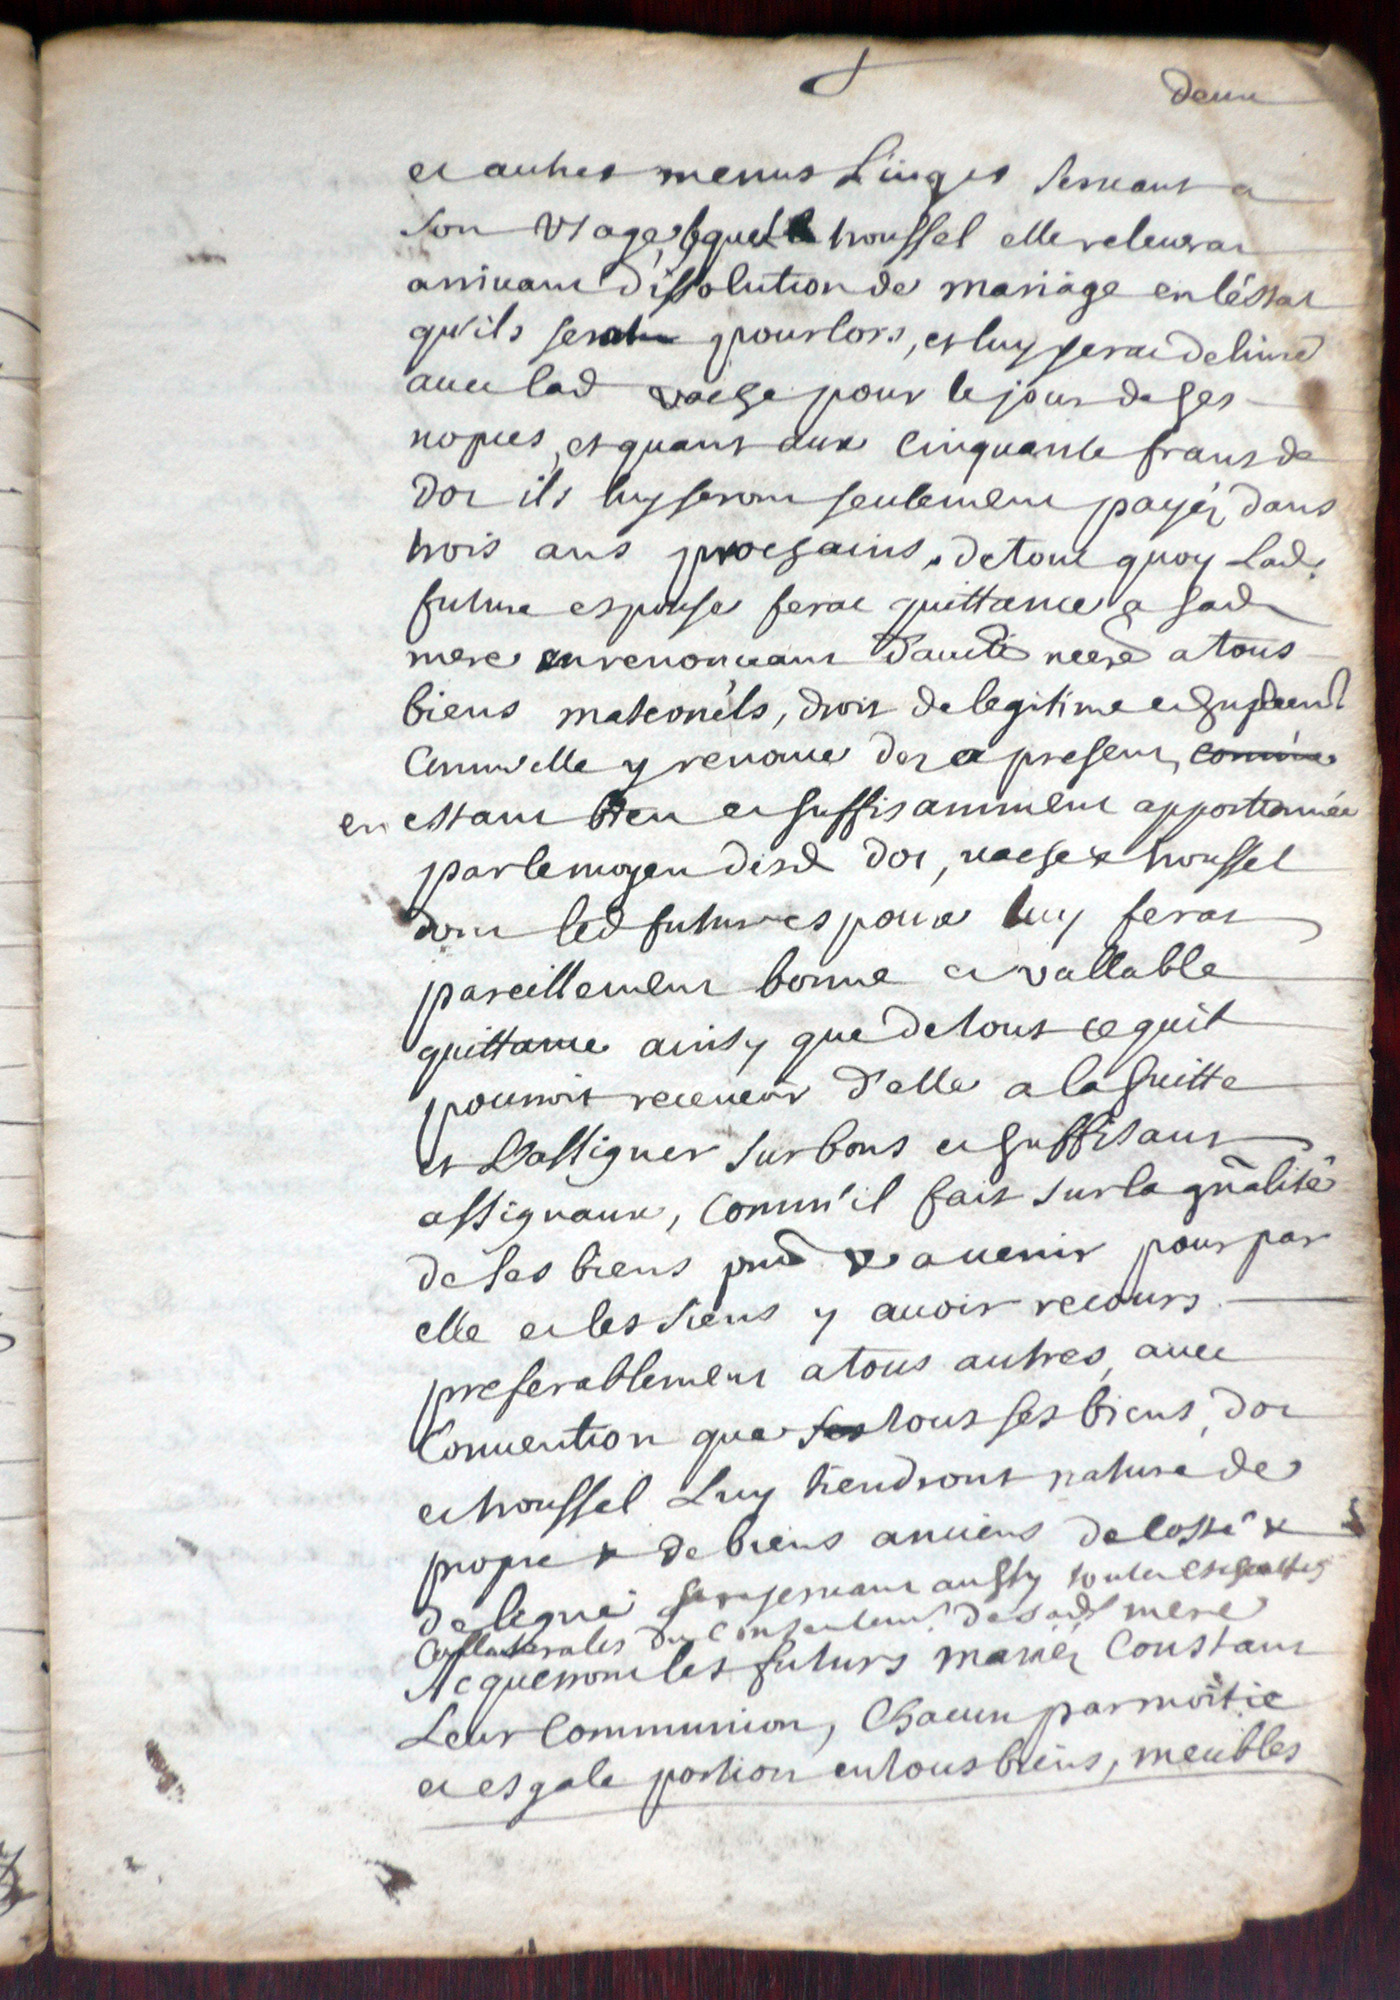 deux
et autres menus Linges servant a
son Usage, lequel trousset elle relevrat
arrivant dissolution de mariage en l'éstat
qu'ils seront pour lors, et luy serat delivré
avec lad vache pour le jour de ses
nopces, et quant aux Cinquante frans de
dot ils luy seront seulement payéz dans
trois ans prochains, de tout quoy Lad.
future espouse ferat quittance a sad
mere en renonceant a tous
biens maternéls, droit de legitime et supplem.t
Comm'elle y renonce dez a present, comme
en estant bien et suffisamment apportionnée
par le moyen desd dot, vache & trousset
dont led futur espoux luy ferat
pareillement bonne et vallable
quittance ainsy que de tout ce quil
pourroit recevoir d'elle a la suitte
et L'assigner sur bons et suffisant
assignaux, Comm'il fait sur la gñalité
de ses biens pnts & a venir pour par
elle et les siens y avoir recours
preferablement a tous autres, avec
Convention que ses tous ses biens, dot
et trousset Luy tiendront nature de
propre & de biens anciens de costé &
de ligne se reservant aussy toutes eschoittes
Collaterales du Consentem.t de sad mere
Acquerront les futurs mariéz Constant
Leur Communion, Chacun par moitie
et esgale portion en tous biens, meubles